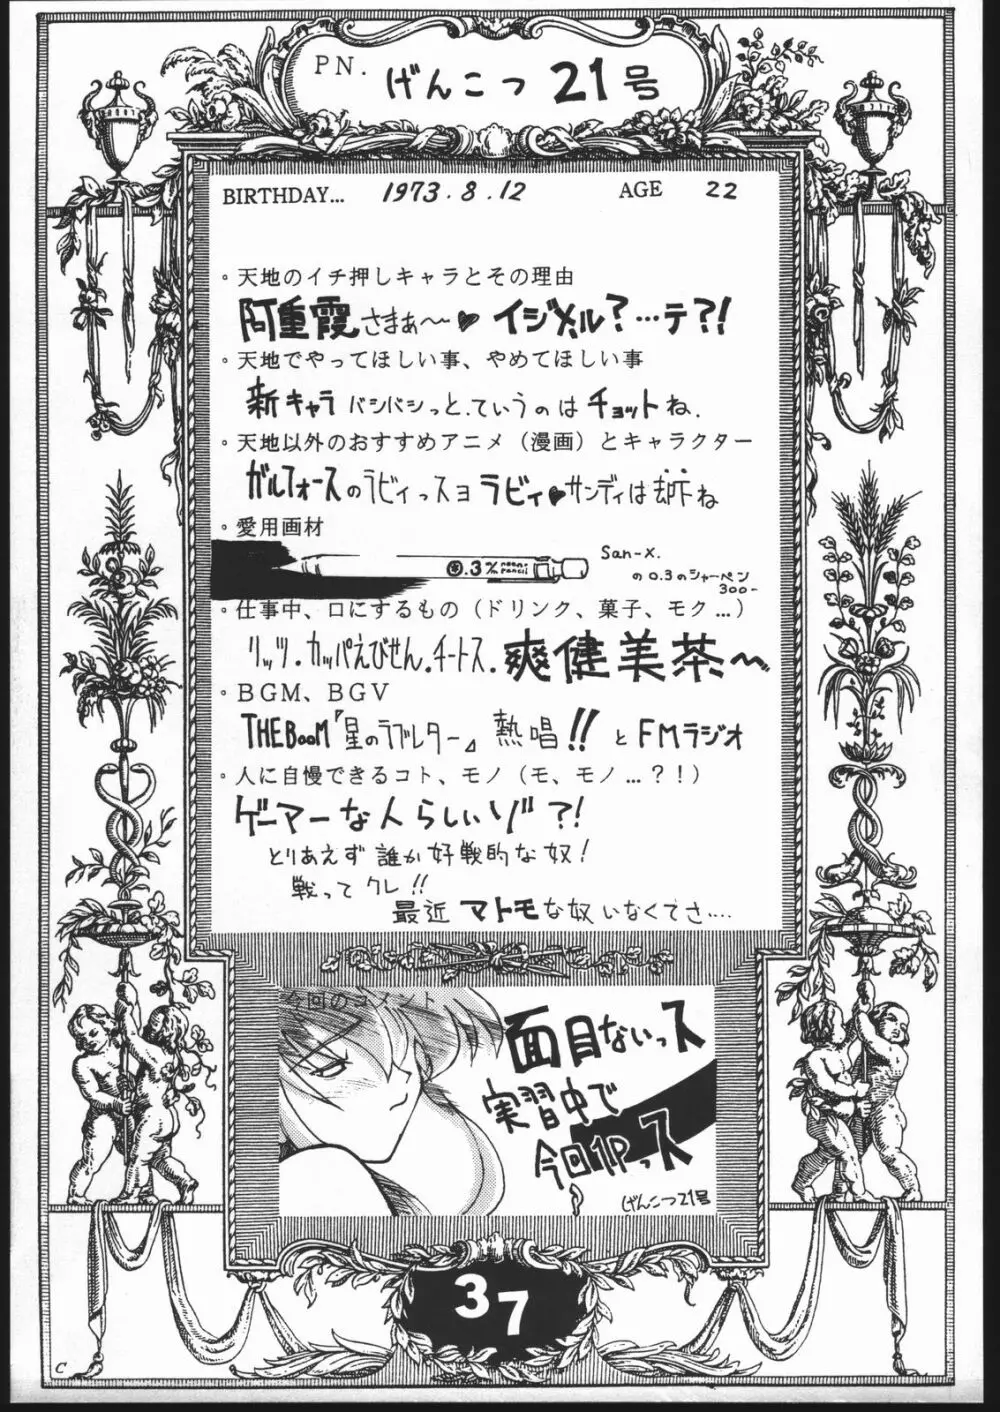 PN.
げんこつ21号
BIRTHDAY... 1973.8.12 AGE 22
。天地のイチ押しキャラとその理由
阿重霞さまぁ〜♥ イジメル?…テ?!
。天地でやってほしい事、やめてほしい事
新キャラ バシバシっと.ていうのはチョットね.
。天地以外のおすすめアニメ（漫画）とキャラクター
ガルフォースのラビィっスヨ ラビィ♥サンディは却下ね
。愛用画材
0.3 %
San-x.
の0.3のシャーペン
300-
。仕事中、口にするもの（ドリンク、菓子、モク…）
リッツ.カッパえびせん.チートス.爽健美茶〜
。BGM、BGV
THE BOOM『星のラブレター』熱唱!!とFMラジオ
。人に自慢できるコト、モノ（モ、モノ…?!）
ゲーマーな人らしいゾ?!
とりあえず誰か好戦的な奴!
戦ってクレ!!
最近マトモな奴いなくてさ….
今回のコメント
面目ないっス
実習中で
今回1Pっス
げんこつ21号
37
C